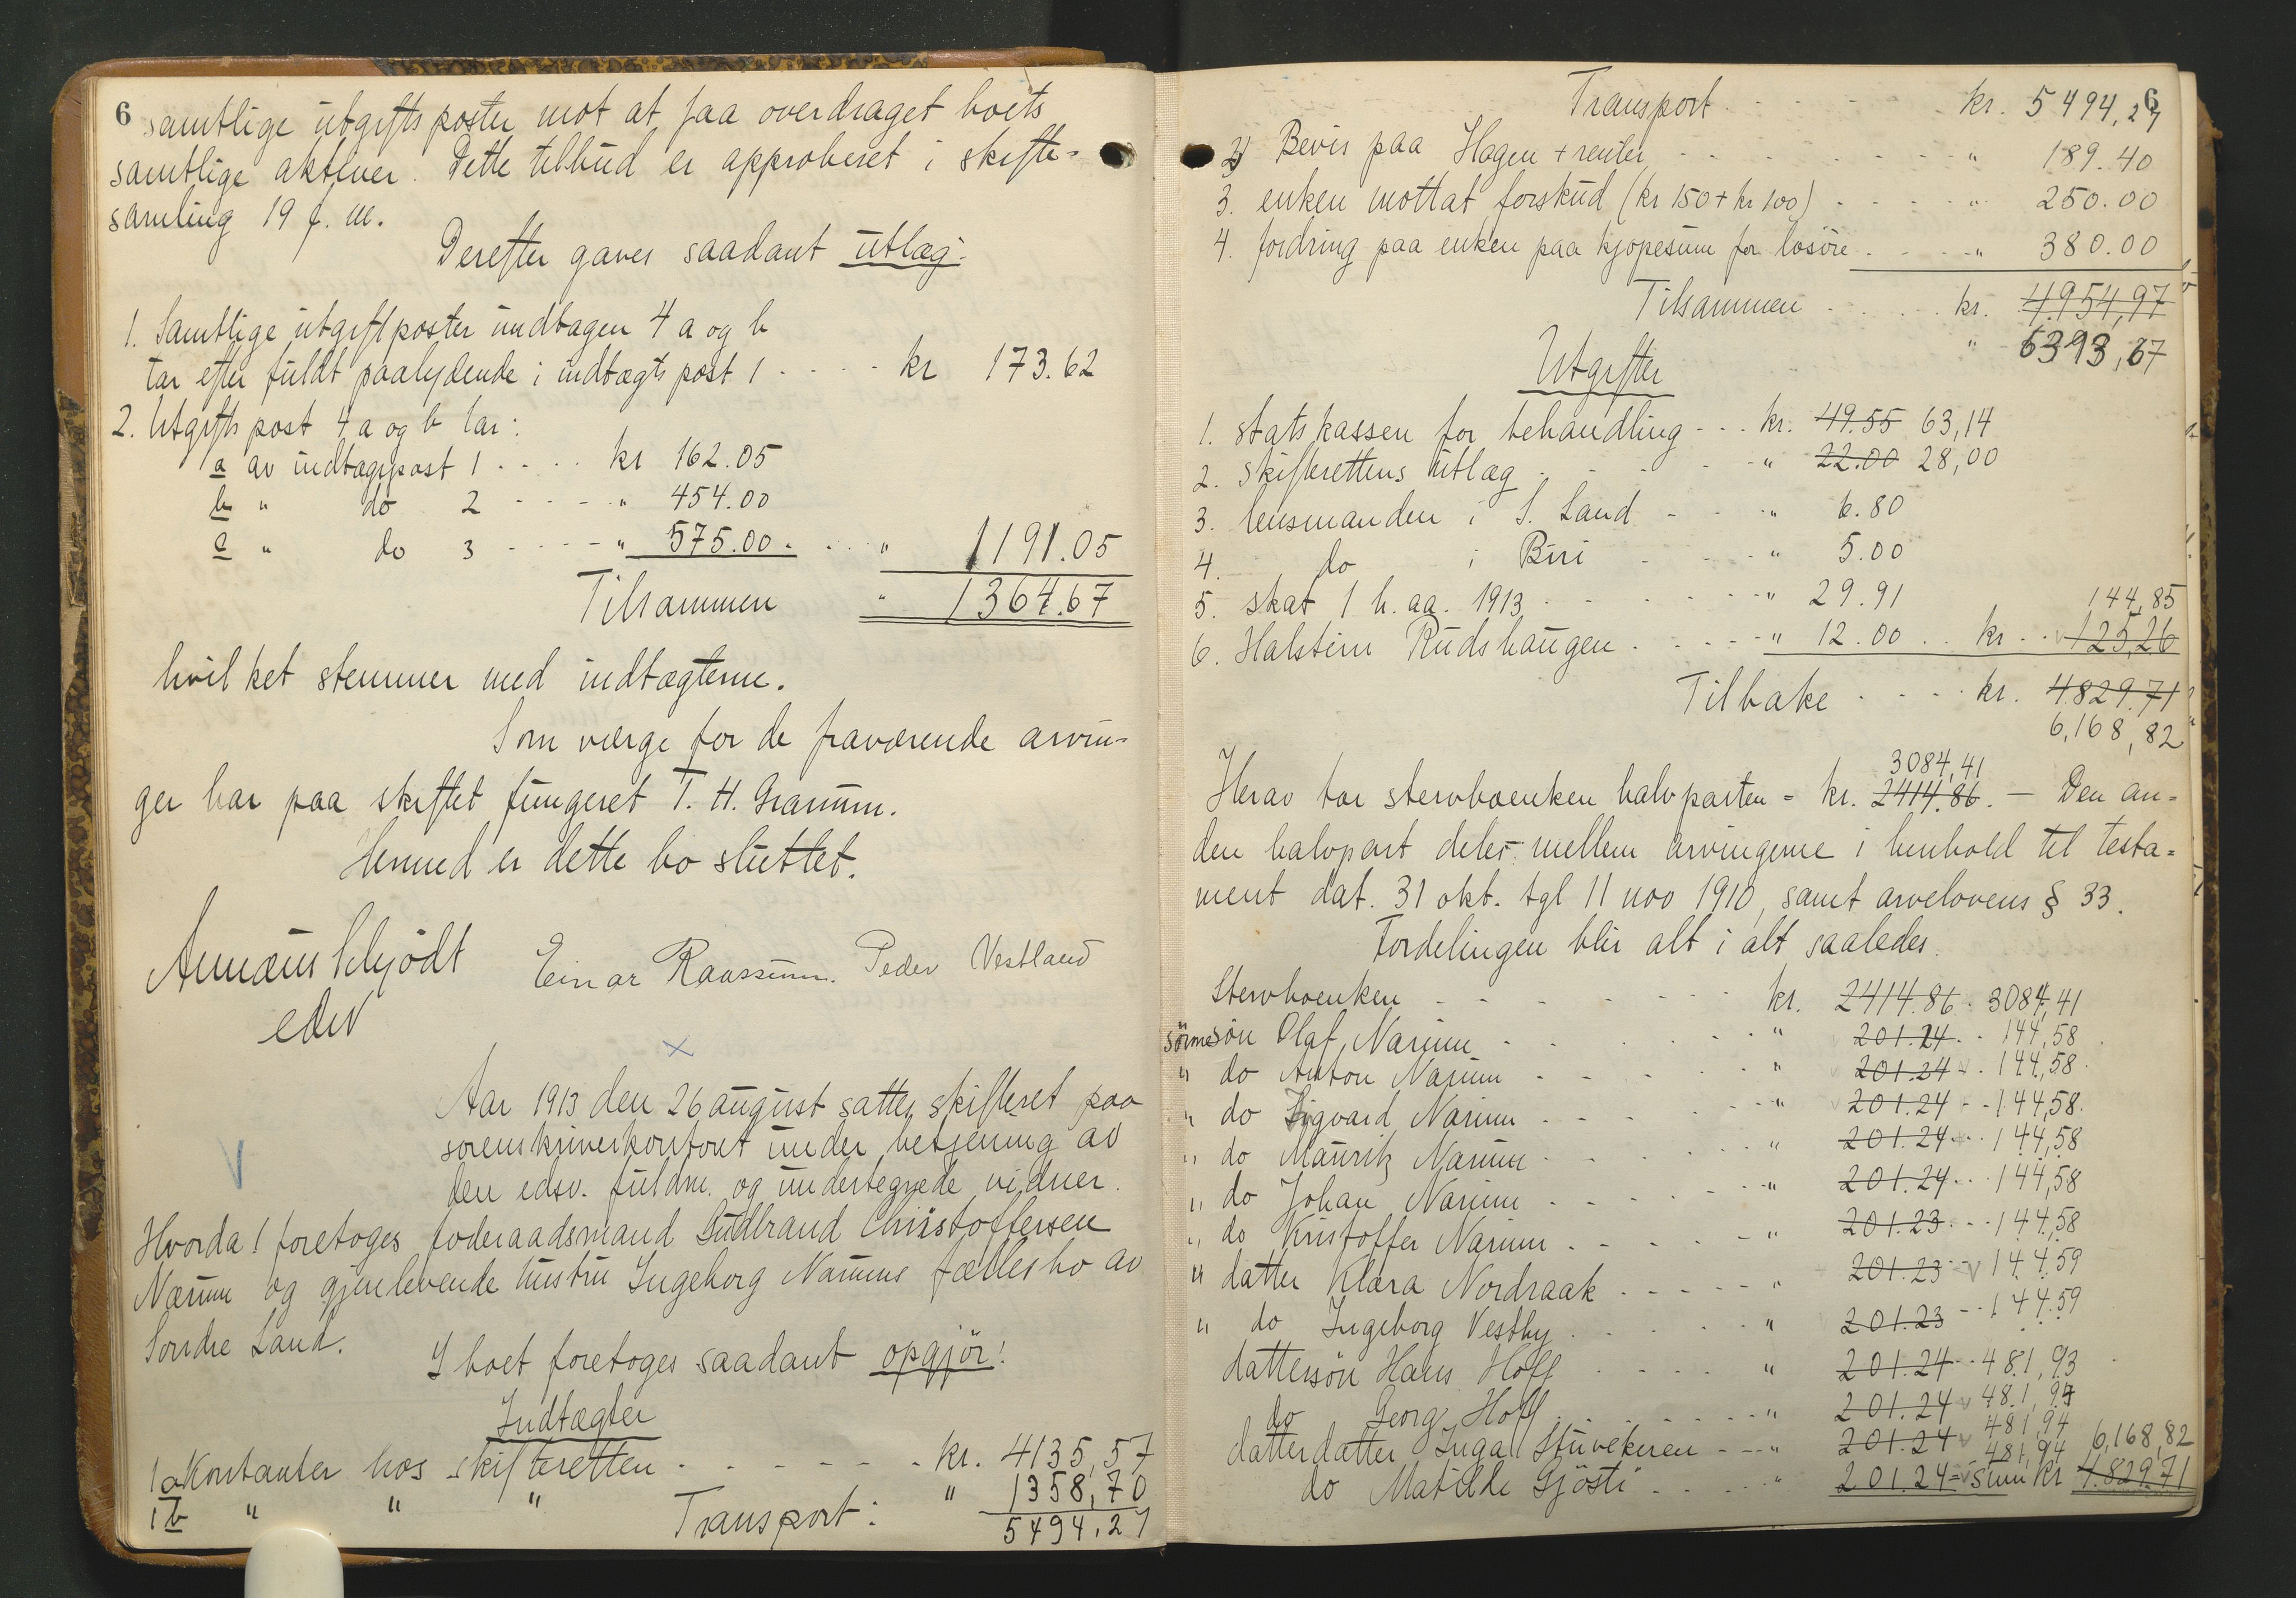 6 samtlige utgiftsposter mot at faa overdraget boets
samtlige aktiver. Dette tilbud er approberet i skifte-
samling 19 f. m.
Derefter gaves saadant utlæg:
1. Samtlige utgiftposter undtagen 4 a og b
tar efter fuldt paalydende i indtægts post 1 - - - - kr 173.62
2. Utgifts post 4 a og b tar:
a av indtægtpost 1 - - - - kr 162.05
b " do 2 - - - - " 454.00
c " do 3 - - - - " 575.00. - - - " 1191.05
Tilsammen " 1364.67
hvilket stemmer med indtægterne.
Som værge for de fraværende arvin-
ger har paa skiftet fungeret T. H. Granum.
Hermed er dette bo sluttet.
Annæus Schjödt Einar Raassum. Peder Vestland
edsv
x
Aar 1913 den 26 august sattes skifteret paa
sorenskriverkontoret under betjening av
den edsv. fuldm. og undertegnede vidner.
V
Hvorda! foretoges foderaadsmand Gudbrand Christoffersen
Narum og gjenlevende hustru Ingeborg Narums fællesbo av
Søndre Land.
I boet foretoges saadant opgjör!
Indtægter
1a Kontanter hos skifteretten - - - - - - kr. 4135,57
1b " " " " 1358,70
Transport: 5494,27
6
Transport - - - - - kr. 5494,27
2) Bevis paa Hagen + renter - - - - - - - - " 189.40
3. enken mottat forskud (kr 150 + kr 100) - - - - - " 250.00
4. fordring paa enken paa kjøpesum for løsøre - - - - " 380.00
Tilsammen - - - - - kr. 4954,97
" 6313,67
Utgifter
1. statskassen for behandling - - - kr. 49.55 63,14
2. skifterettens utlæg - - - - - " 22.00 28,00
3. lensmanden i S. Land - - - " 6.80
4. do i Biri - - - " 5.00
5. skat 1 h. aa. 1913 - - - - - - " 29.91 144,85
6. Halstein Rudshaugen - - - - - " 12.00 . . kr - - 125,26
Tilbake - - - - kr. 4829.71
6,168,82
3084,41
Herav tar stervboenken halvparten = kr. 2414.86. — Den an-
den halvpart deles mellem arvingerne i henhold til testa-
ment dat. 31 okt. tgl 11 nov 1910, samt arvelovens § 33.
Fordelingen blir alt i alt saaledes.
Stervboenken - - - - - - - kr. 2414.86. 3084,41
sönnesön Olaf Narum - - - - - - " 201.24 - - 144,58
" do Anton Narum - - - - - " 201.24 - - 144,58
" do Sigvard Narum - - - - - " 201.24 - - 144,58
" do Mauritz Narum - - - - - " 201.24 - - 144,58
" do Johan Narum - - - - - " 201.24 - - 144,58
" do Kristoffer Narum - - - - - " 201.23 - - 144,58
" datter Klara Nordraak - - - - - " 201.23 - 144.59
" do Ingeborg Vestby - - - - - " 201.23 - - 144.59
dattersön Hans Hoff - - - - - " 201.24 - - 481,93
do Georg Hoff - - - - - " 201.24 481,94
datterdatter Inga Stuvekeren - - - " 201.24 481,94 6,168,82
do Matilde Gjösti - - - - " 201.24 = 481,94 sum kr 4.829.71